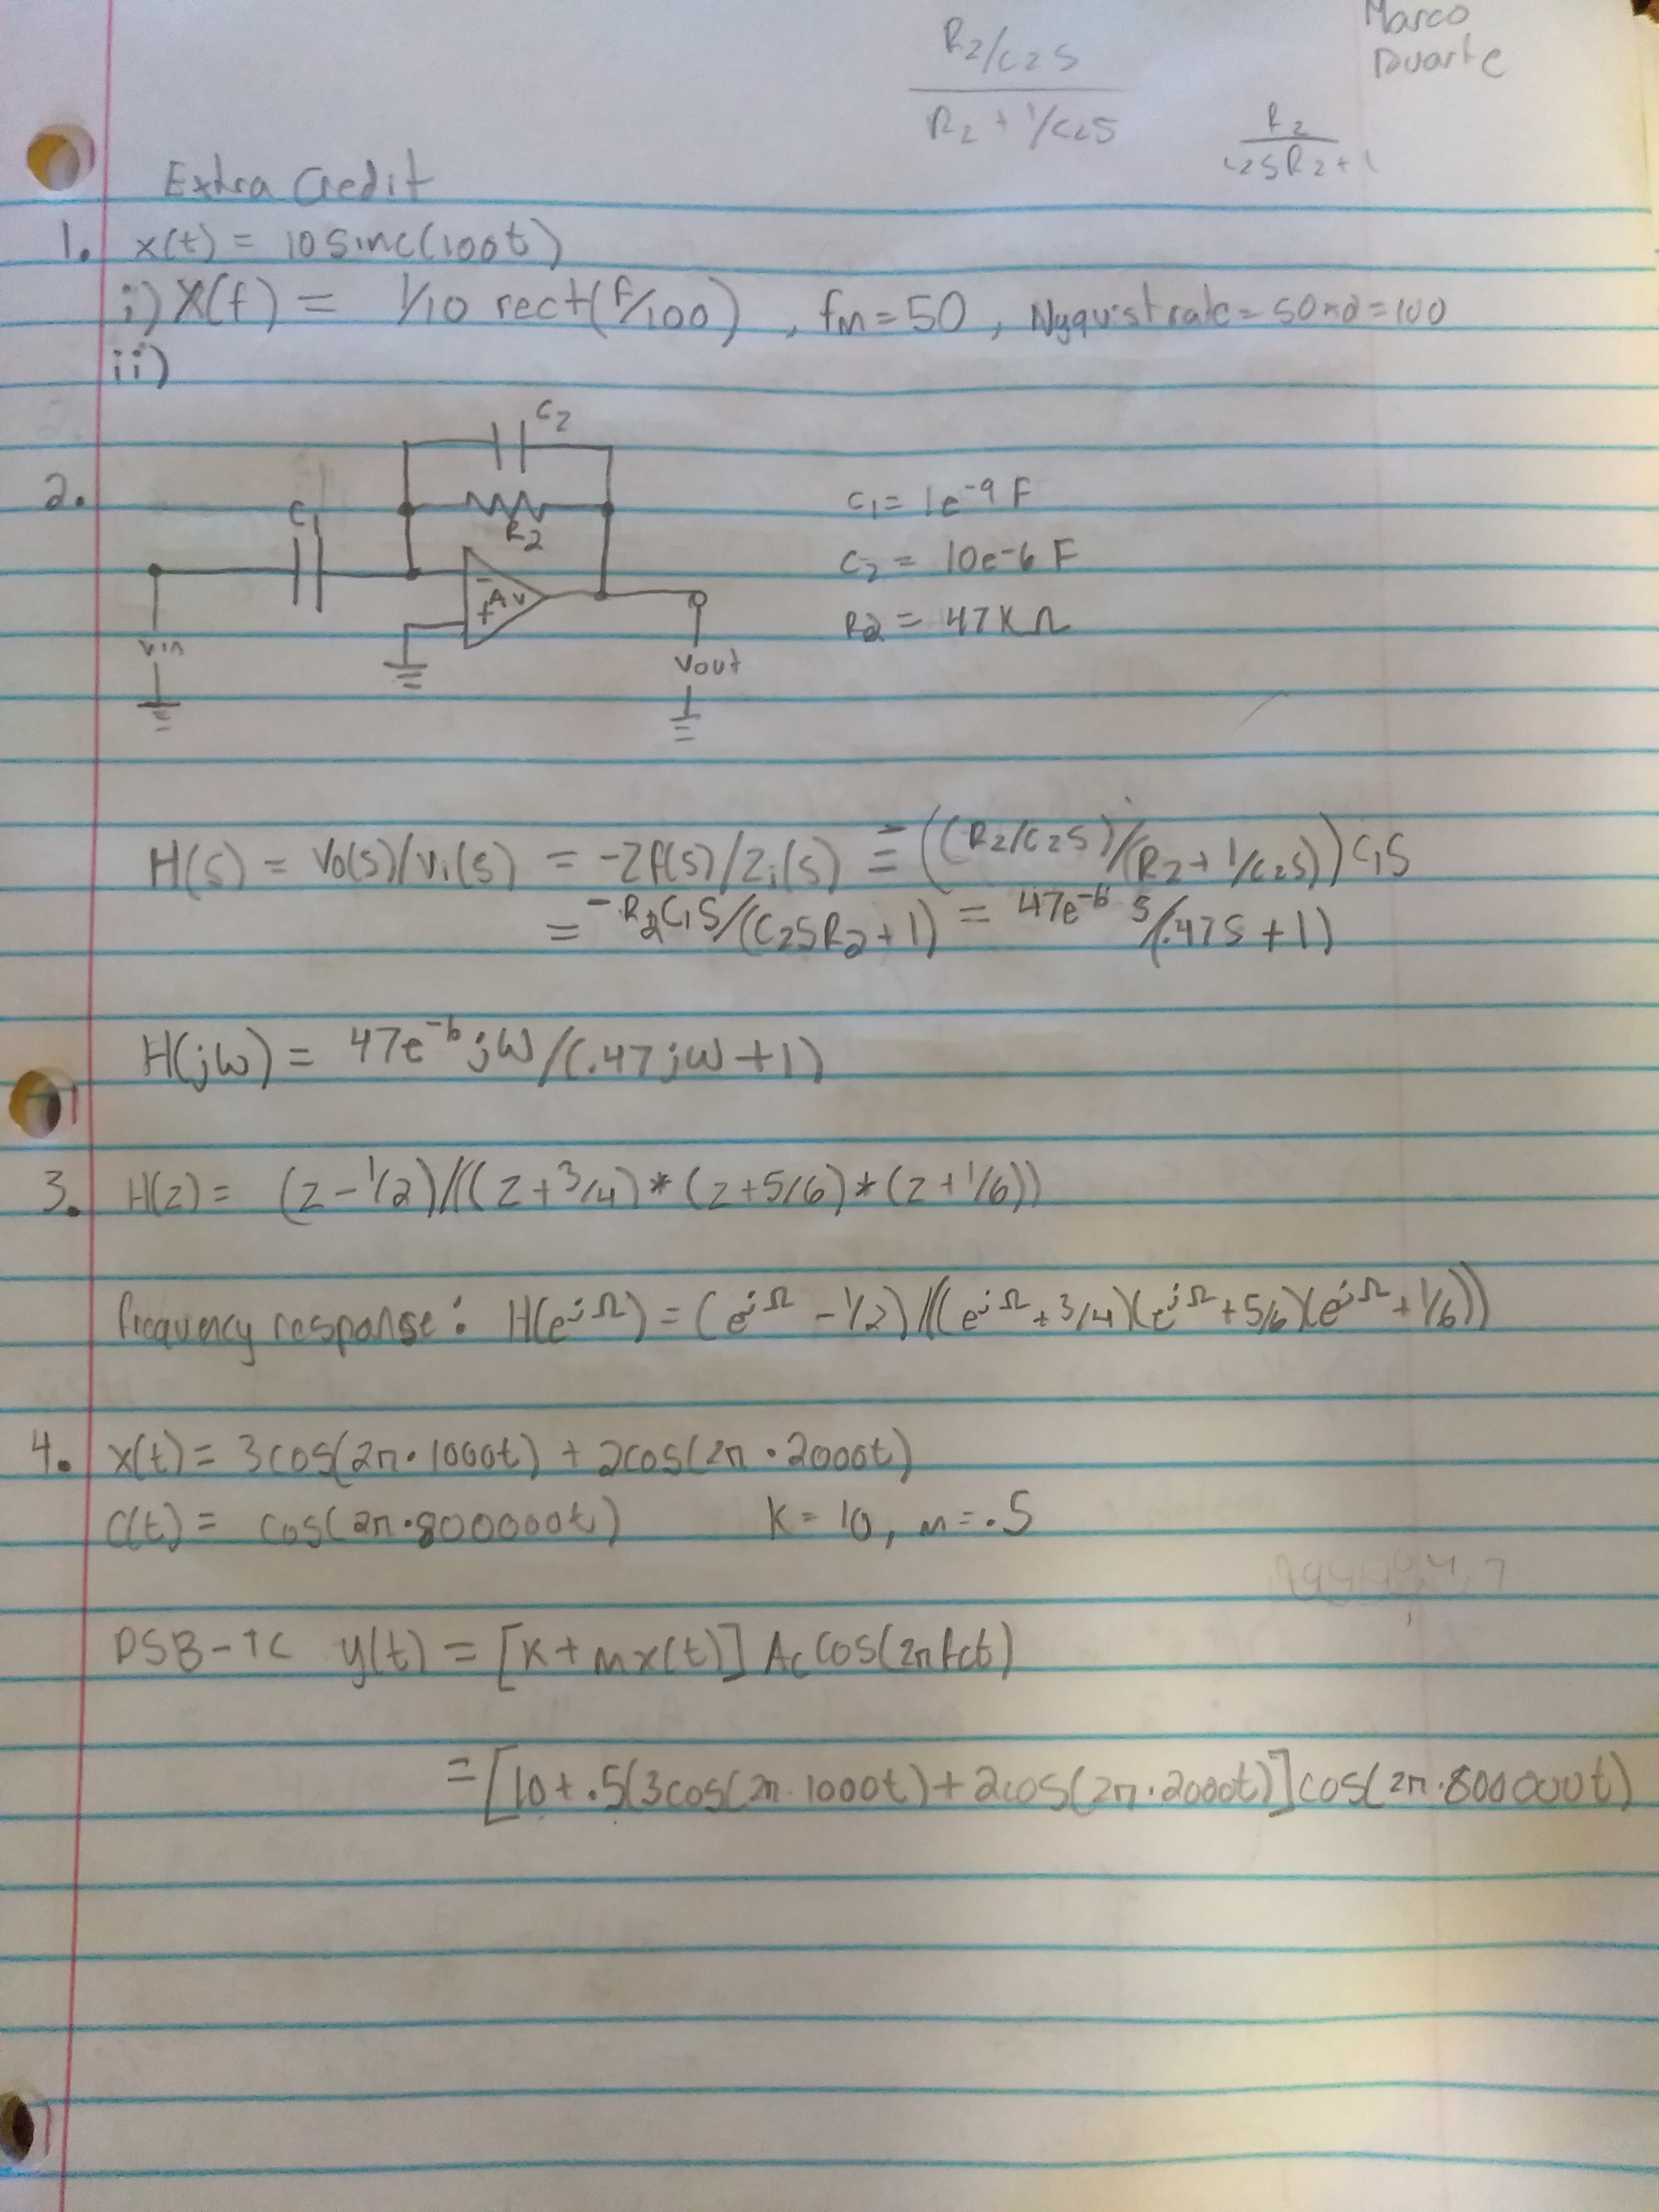 Marco
Duarte
R2/C2S
R2 + 1/C2S
R2
C2SR2+1
Extra Credit
1. x(t) = 10 sinc(100t)
i) X(f) = 1/10 rect(f/100) , fm = 50 , Nyquist rate = 50×2 = 100
ii)
2.
C2
R2
C1
- Av
+
Vin
Vout
C1 = 1e^-9 F
C2 = 10e^-6 F
R2 = 47KΩ
H(s) = Vo(s)/Vi(s) = -Zf(s)/Zi(s) = -((R2/C2S)/(R2 + 1/C2S)) C1S
= -R2C1S/(C2SR2 + 1) = 47e^-6 S/(.47S + 1)
H(jω) = 47e^-6 jω/(.47jω + 1)
3. H(z) = (z - 1/2)/((z + 3/4) * (z + 5/6) * (z + 1/6))
frequency response: H(e^jΩ) = (e^jΩ - 1/2)/((e^jΩ + 3/4)(e^jΩ + 5/6)(e^jΩ + 1/6))
4. x(t) = 3cos(2π·1000t) + 2cos(2π·2000t)
C(t) = cos(2π·800000t) K = 10, m = .5
DSB-TC y(t) = [K + mx(t)] Ac cos(2πfct)
= [10 + .5(3cos(2π·1000t) + 2cos(2π·2000t)] cos(2π·800000t)